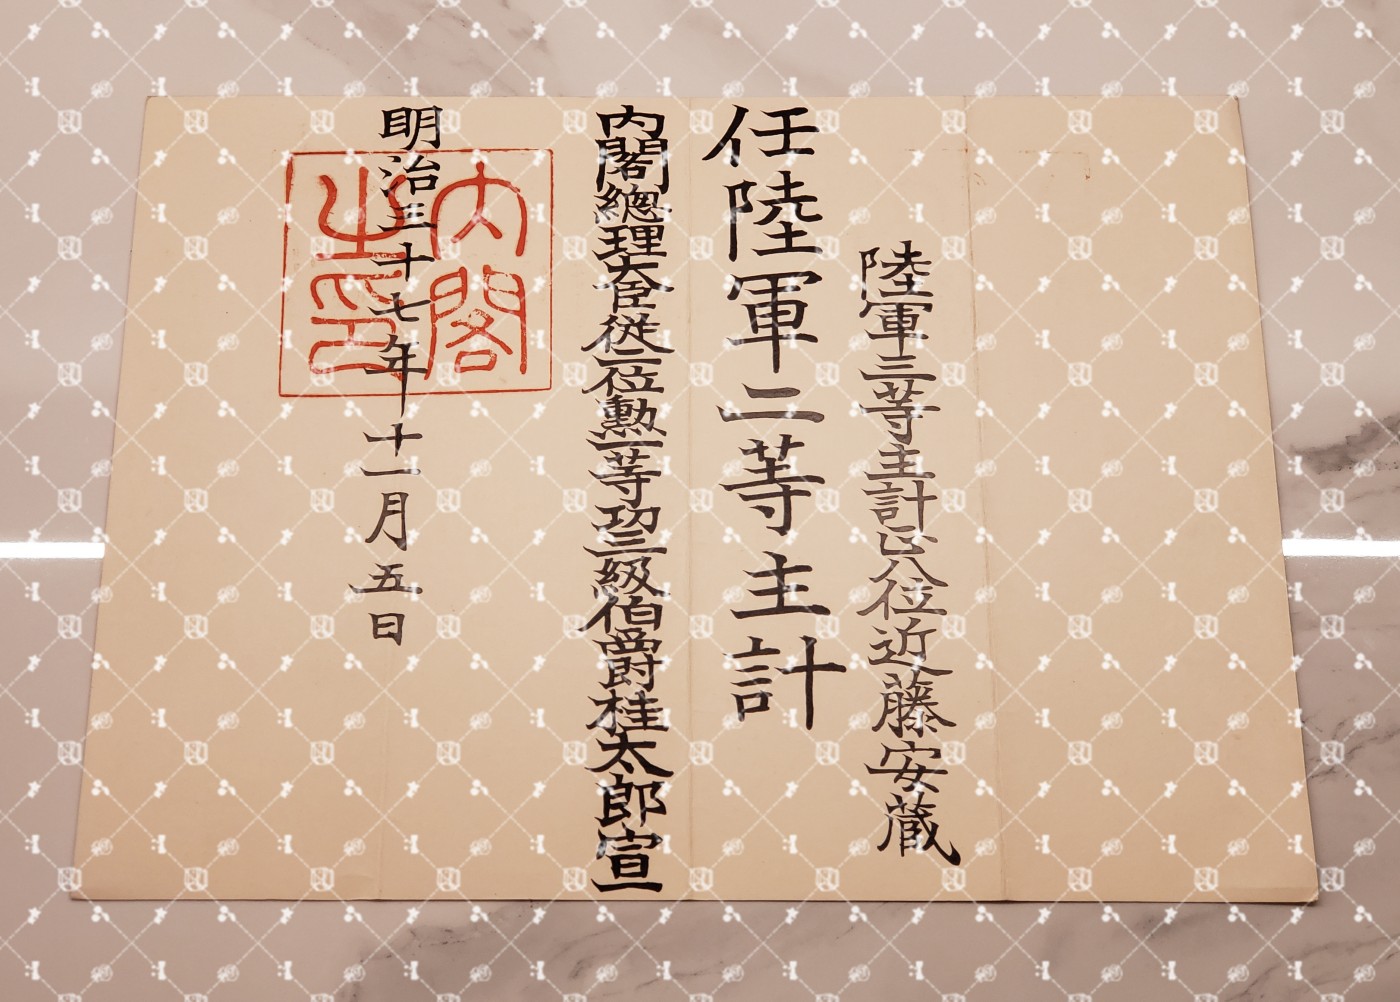 陸軍三等主計正八位近藤安蔵
任陸軍二等主計
内閣總理大臣従二位勲一等功三級伯爵桂太郎宣
明治三十七年十一月五日
内閣
之印